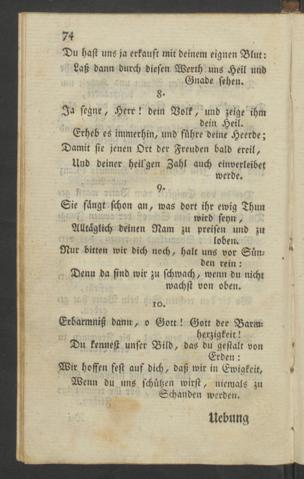 74
Du hast uns ja erkauft mit deinem eignen Blut:
Laß dann durch diesen Werth uns Heil und
Gnade sehen.
8.
Ja segne, Herr! dein Volk, und zeige ihm
dein Heil.
Erheb es immerhin, und führe deine Heerde;
Damit sie jenen Ort der Freuden bald ereil,
Und deiner heil'gen Zahl auch einverleibet
werde.
9.
Sie fängt schon an, was dort ihr ewig Thun
wird seyn,
Alltäglich deinen Nam zu preisen und zu
loben.
Nur bitten wir dich noch, halt uns vor Sün-
den rein:
Denn da sind wir zu schwach, wenn du nicht
wachst von oben.
10.
Erbarmniß dann, o Gott! Gott der Barm-
herzigkeit!
Du kennest unser Bild, das du gestalt von
Erden:
Wir hoffen fest auf dich, daß wir in Ewigkeit,
Wenn du uns schützen wirst, niemals zu
Schanden werden.
Uebung